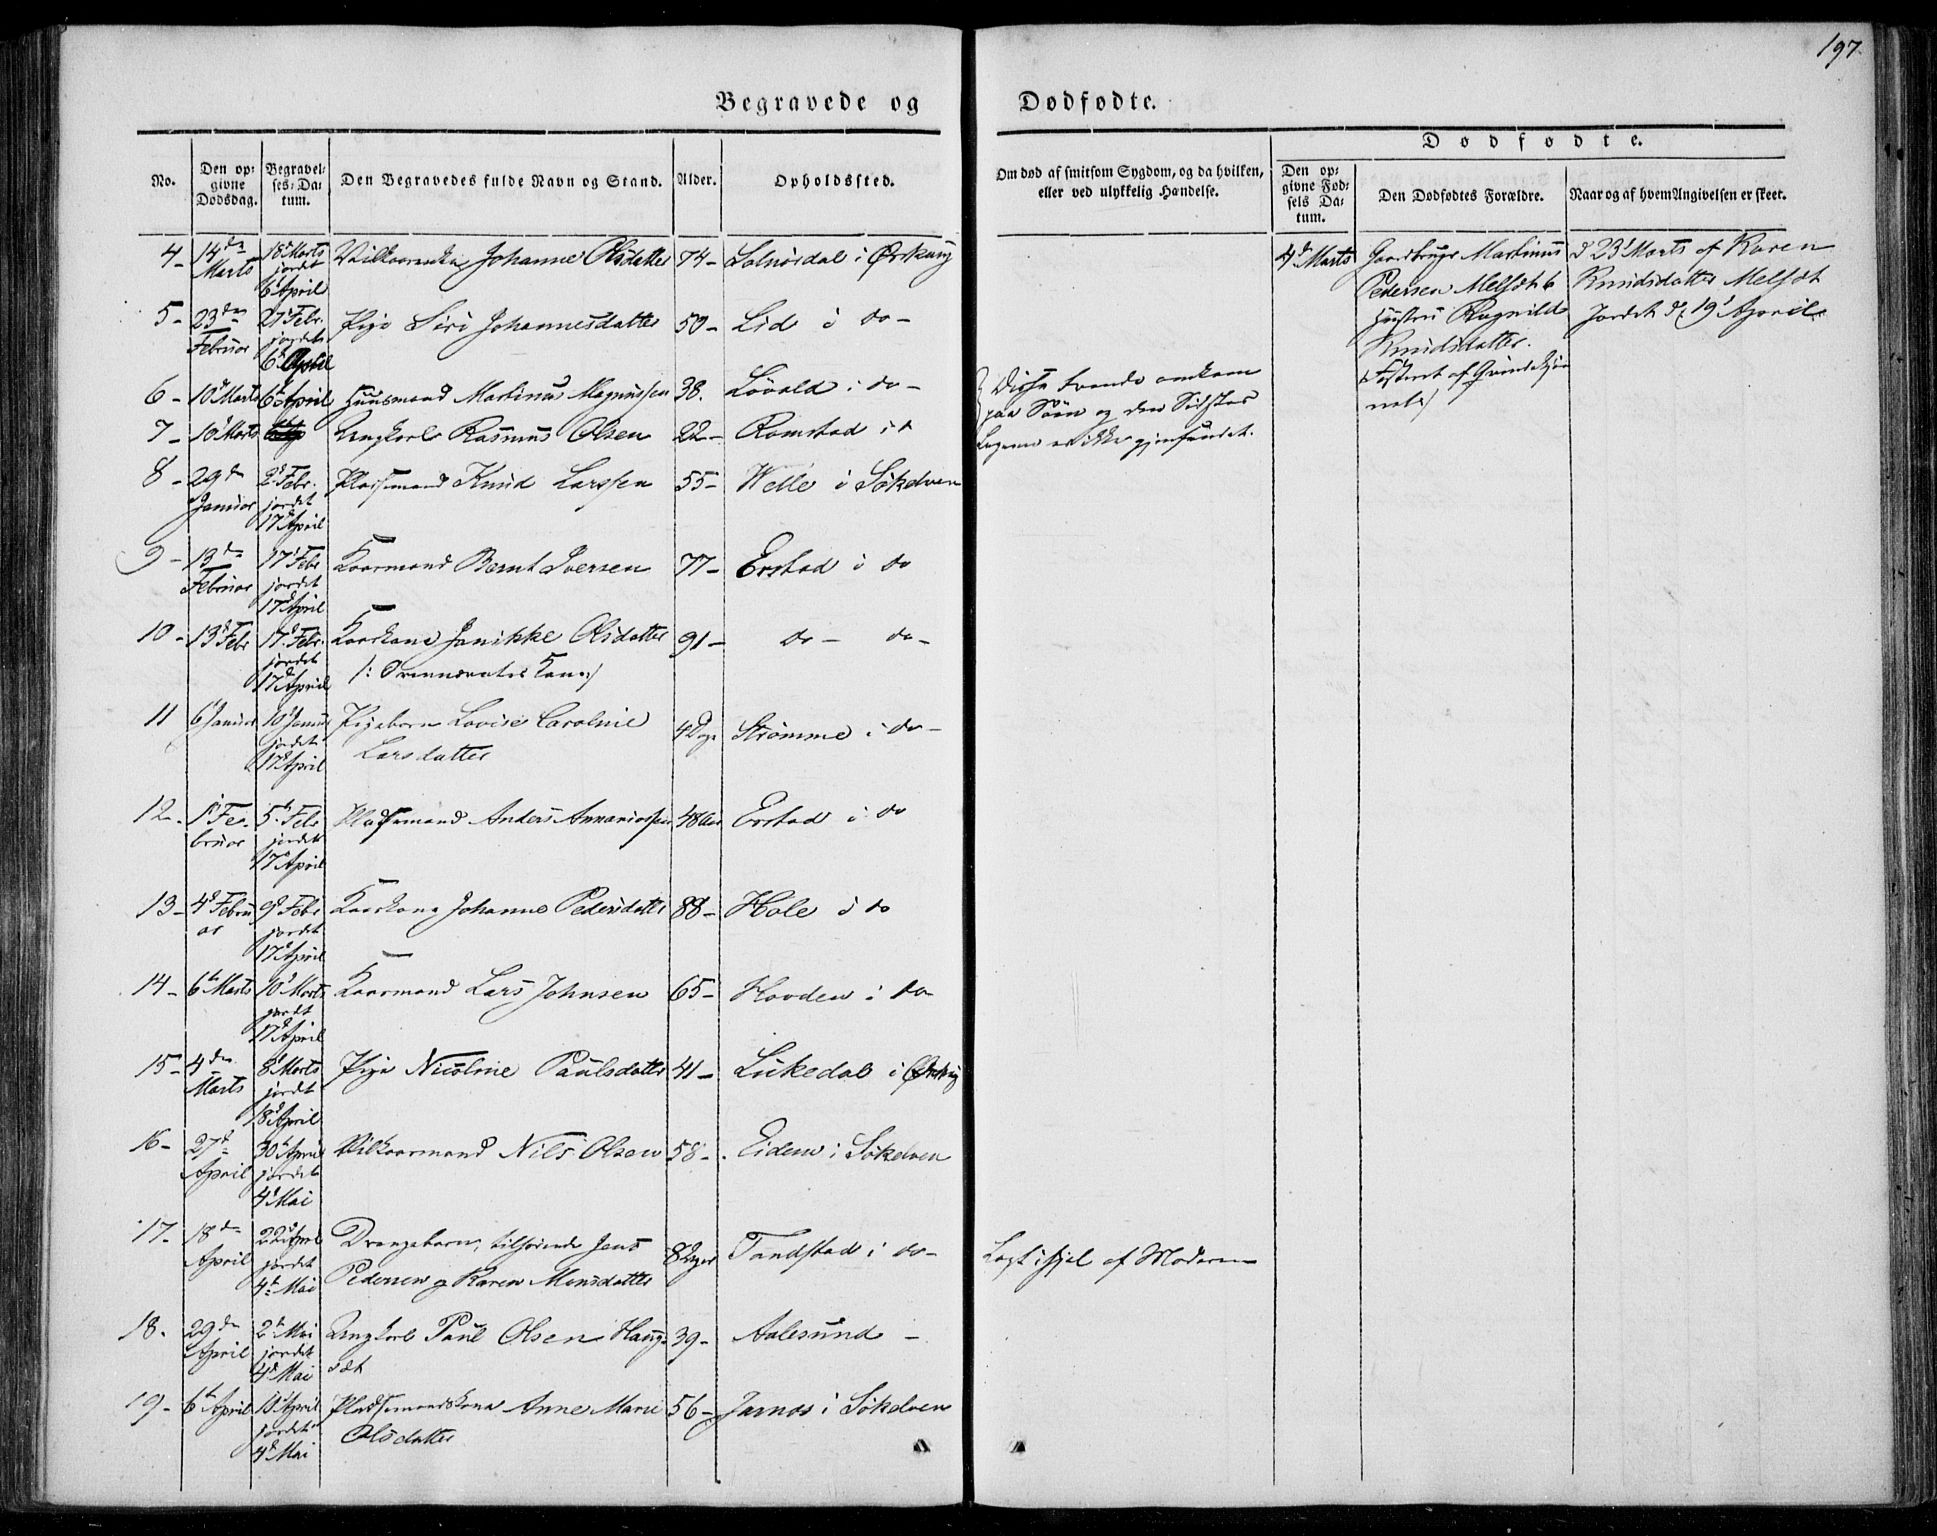 197.
Begravede og Dødfødte.
Dødfødte.
No.
Den opgivne Dødsdag.
Begravelses-Datum.
Den Begravedes fulde Navn og Stand.
Alder.
Opholdssted.
Om død af smitsom Sygdom, og da hvilken,
eller ved ulykkelig Hændelse.
Den opgivne Fødsels Datum.
Den Dødfødtes Forældre.
Naar og af hvem Angivelsen er skeet.
4 - 14de Marts 18 Marts jordet 6 April Johanne Olsdatter 74 - Solnørdal i Ørskoug
5 - 23de Februar 27 Febr. jordet 6 April Pige Siri Johannesdatter 50 - Lid i do -
6 - 10 Marts 6 April Huusmand Martinus Magnussen 38. Løvold i do -
7 - 10 Marts Ungkarl Rasmus Olsen 22 - Ramstad i do
Disse tvende omkom
paa Søen og den Sidstes
Legeme er ikke gjenfundet.
8 - 29de Januar 2 Febr. jordet 17 April Pladsemand Knud Larssen 55 - Welle i Søkelven
9 - 13de Februar 17 Febr jordet 17 April Kaarmand Bernt Iversen 77 - Erstad i do
10 - 13 Febr 17 Febr. jordet 17 April Kaarkone Jenikke Olsdatter 91 - do - do -
11 6 Januar 10 Januar jordet 17 April Pigebarn Lovise Caroline
Larsdatter 4 Dage Strømme i do -
12 - 1 Februar 5 Febr jordet 17 April Pladsemand Anders Annaniassen 48 Aar Erstad i do
13 - 4 Februar 9 Febr jordet 17 April Kaarkone Johanne Pedersdatter 88 - Hole i do
14 - 6 Marts 10 Marts jordet 17 April Kaarmand Lars Johnsen 65 - Hovden i do
15 - 4de Marts 8 Marts jordet 18 April Pige Nicoline Paulsdatter 41 - Lukedal i Ørskoug
16 - 27de April 30 April jordet 4 Mai Vilkaarmand Nils Olsen 58 - Eidem i Søkelven
17 - 18de April 22 April jordet 4 Mai Drengebarn, tilhørende Jens
Pedersen og Karen Monsdatter 8 Dager Tandstad i do -
Lagt ihjel af Moderen
18. 29de April 2 Mai jordet 4 Mai Ungkarl Paul Olsen Haugsæt 39 - Aalesund -
19 - 6 April 11 April jordet 4 Mai Pladsemandskone Anne Marie
Olsdatter 56 - Jarnes i Søkelven
4 Marts
Gaardbruger Martinus
Pedersen Melsæt &
Hustru Ragnild
Knudsdatter.
d 23 Marts af Karen
Knudsdatter Melsæt
Jordet d. 19 April.